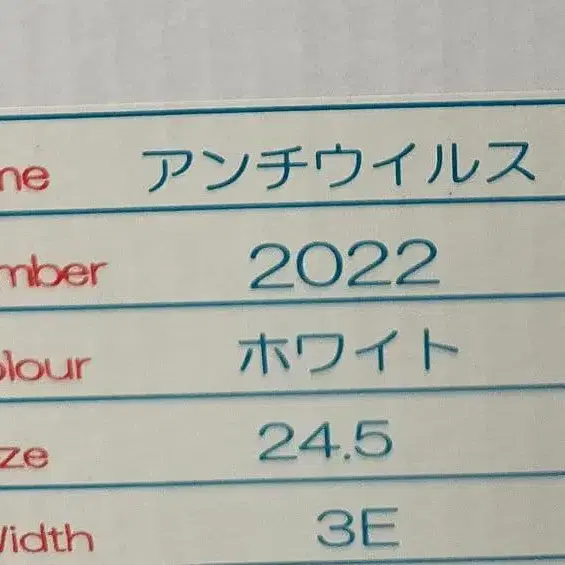 me アンチウイルス
mber 2022
olour ホワイト
ze 24.5
idth 3E